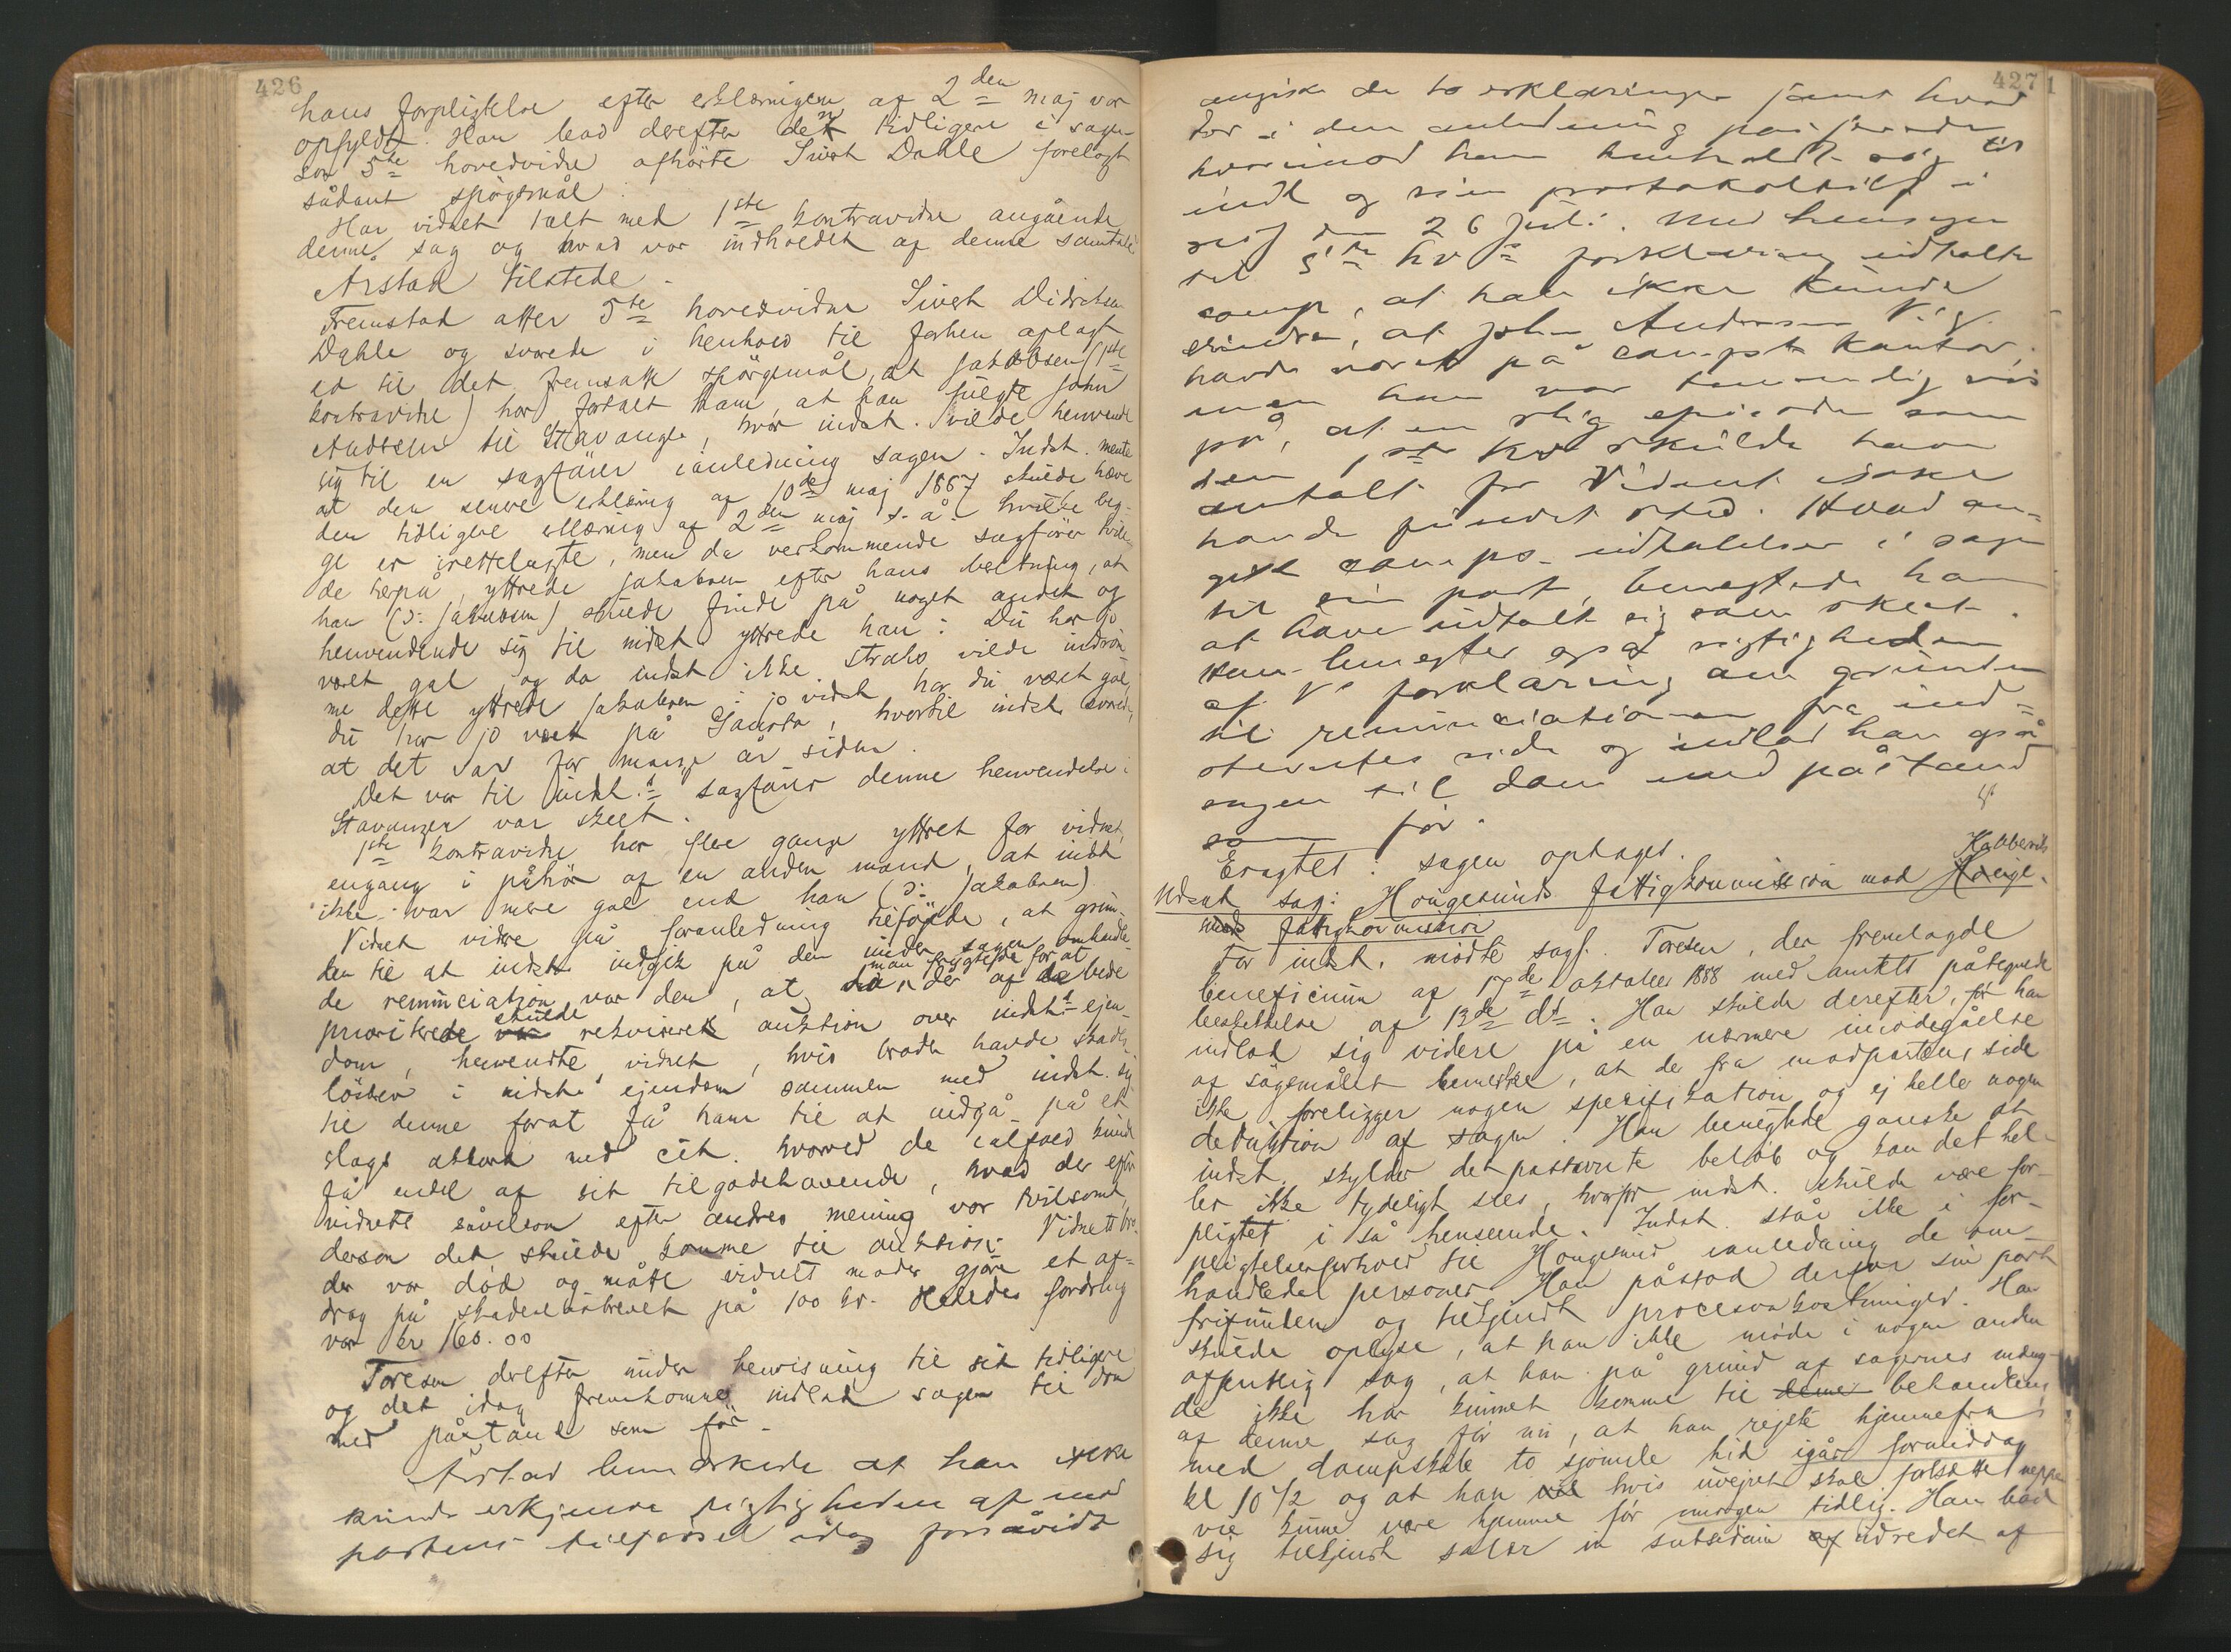 426
hans forpligtelse efter erklæringen af 2den maj var
opfyldt. Han bad derefter den tidligere i sagen
som 5te hovedvidne afhørte Sivert Dahle forelagt
sådant spørgsmål:
Har vidnet talt med 1ste kontravidne angående
denne sag og hvad var indholdet af denne samtale
Årstad tilstede.
Fremstod atter 5te hovedvidne Sivert Didriksen
Dahle og svarede i henhold til forhen aflagt
ed til det fremsatte spørgsmål, at Jakobsen (1ste
kontravidne) har fortalt ham, at han fulgte John
Andersen til Stavanger, hvor indst. vilde henvende
sig til en sagfører i anledning sagen. Indst. mente
at den senere erklæring af 10de maj 1887 skulde hæve
den tidligere erklæring af 2den maj s. å. hvilke beg-
ge er irettelagte, men da vedkommende sagfører tvile-
de herpå, yttrede Jakobsen efter hans beretning, at
han (ɔ: Jakobsen) skulde finde på noget andet og
henvendende sig til indst. yttrede han: Du har jo
været gal, og da indst. ikke straks vilde indrøm-
me dette yttrede Jakobsen: jo vidst har du været gal,
du har jo været på Gausta, hvortil indst. svarede,
at det var for mange år siden.
Det var til indst.s sagfører denne henvendelse i
Stavanger var skeet.
1ste kontravidne har flere gange yttret for vidnet,
engang i påhør af en anden mand, at indst.
ikke var mere gal end han (ɔ: Jakobsen).
Vidnet videre på foranledning tilføjede, at grun-
den til at indst. indgik på den under sagen omhandle-
de renunciation var den, at man frygtede for at der af de bedre
prioriterede skulde rekvireret auktion over indst.s ejen-
dom, henvendte vidnet, hvis broder havde skades-
løsbrev i indst.s ejendom sammen med indst. sig
til denne forat få ham til at indgå på et
slags akkord med cit. hvorved de ialfald kunde
få endel af sit tilgodehavende, hvad der efter
vidnets såvelsom efter andres mening var tvilsomt,
dersom det skulde komme til auktion. Vidnets bro-
der var død og måtte vidnets moder gjøre et af-
drag på skadesløsbrevet på 100 kr. Hendes fordring
var kr 160.00
Toresen derefter under henvisning til sit tidligere
og det idag fremkomne indlod sagen til dom
med påstand som før.
Årstad bemærkede at han ikke
kunde erkjende rigtigheden af mod
partens tilførsel idag forsåvidt
427
angik de to erklæringer samt hvad
der i den anledning passerede
hvorimod han henholdt sig til
indl. og sin protokoltilf. i
ret den 26 Juli. Med hensyn
til 5te hv.s forklaring udtalte
comp., at han ikke kunde
erindre, at John Andersen Vig
havde været på comp.s kontor,
men han var temmelig vis
på, at en slig episode som
den 1ste kv. skulde have
omtalt for vidnet ikke
havde fundet sted. Hvad an-
gik comp.s udtalelser i sagen
til sin part, benegtede han
at have udtalt sig som skeet.
Han benegter også rigtigheden
af V.s forklaring om grunden
til renunciationen fra ind-
stevntes side og indlod han også
sagen til dom med påstand
som før.
Eragtet: sagen optaget.
Udsat sag: Hougesunds fattigkommission mod
fattigkommission
For indst. mødte sagf. Toresen, der fremlagde
beneficium af 17de oktober 1888 med amtets påtegnede
beskikkelse af 13de dt. Han skulde derefter, før han
indlod sig videre på en nærmere imødegåelse
af søgsmålet bemerke, at der fra modpartens side
ikke foreligger nogen spesifikation og ej heller nogen
deduktion af sagen. Han benegtede ganske at
indst. skylder det påstævnte beløb og kan det hel-
ler ikke tydeligt sees, hvorfor indst. skulde være for-
pligtet i så henseende. Indst. står ikke i for-
pligtelsesforhold til Hougesund i anledning de om-
handlede personer. Han påstod derfor sin part
frifunden og tilkjendt procesomkostninger. Han
skulde oplyse, at han ikke møder i nogen anden
offentlig sag, at han på grund af sagernes mæng-
de ikke har kunnet komme til behandling
af denne sag før nu, at han rejste hjemmefra
med dampskib to sjømile hid igår formiddag
kl 10 1/2 og at han hvis uvejret skal fortsætte neppe
vil kunne være hjemme før imorgen tidlig. Han bad
sig tilkjendt salær in subsidium udredet af